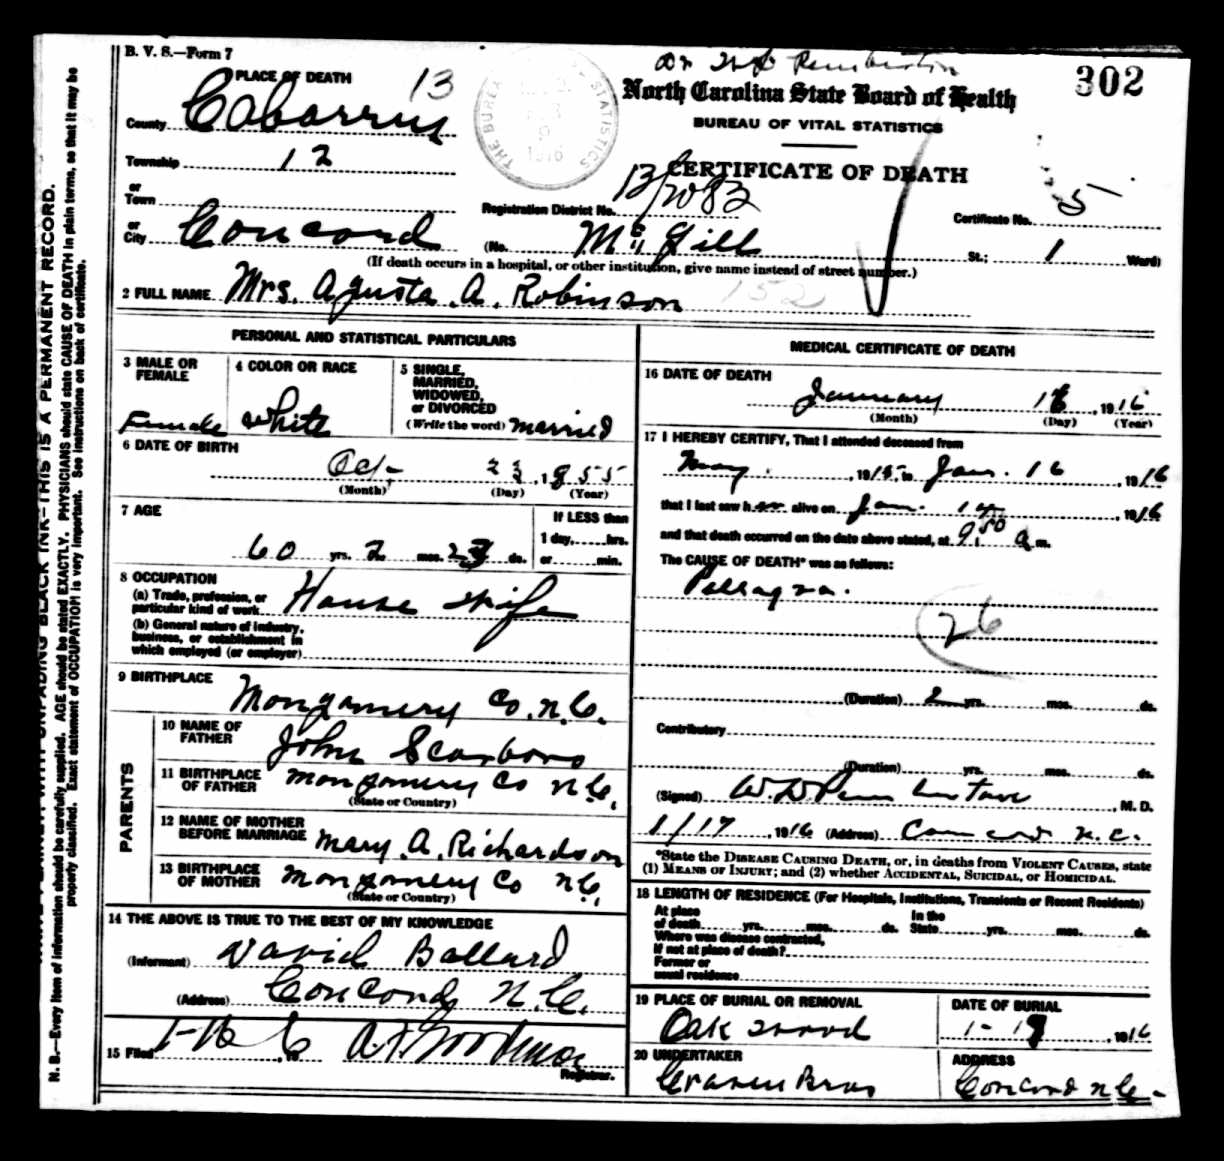 B. V. S.—Form 7
302
PLACE OF DEATH 13
North Carolina State Board of Health
BUREAU OF VITAL STATISTICS
County Cabarrus
Township 12
CERTIFICATE OF DEATH
or
Town
Registration District No. 13/2082
Certificate No. 5
or
City Concord (No. McGill St.; 1 Ward)
(If death occurs in a hospital, or other institution, give name instead of street number.)
2 FULL NAME Mrs. Agusta. A. Robinson 152
PERSONAL AND STATISTICAL PARTICULARS
3 MALE OR FEMALE
Female
4 COLOR OR RACE
white
5 SINGLE, MARRIED, WIDOWED, or DIVORCED
(Write the word) married
6 DATE OF BIRTH
Oct 23, 1855
(Month) (Day) (Year)
7 AGE
60 yrs. 2 mos. ds.
If LESS than
1 day,......hrs.
or......min.
8 OCCUPATION
(a) Trade, profession, or
particular kind of work House wife
(b) General nature of industry,
business, or establishment in
which employed (or employer)
9 BIRTHPLACE
Montgomery Co. N.C.
PARENTS
10 NAME OF FATHER
John Scarboro
11 BIRTHPLACE OF FATHER
Montgomery Co N.C.
(State or Country)
12 NAME OF MOTHER BEFORE MARRIAGE
Mary. A. Richardson
13 BIRTHPLACE OF MOTHER
Montgomery Co N.C.
(State or Country)
14 THE ABOVE IS TRUE TO THE BEST OF MY KNOWLEDGE
(Informant) David Ballard
(Address) Concord, N.C.
15 Filed
Registrar.
MEDICAL CERTIFICATE OF DEATH
16 DATE OF DEATH
January 16, 1916
(Month) (Day) (Year)
17 I HEREBY CERTIFY, That I attended deceased from
May., 1915, to Jan. 16 1916
that I last saw her alive on Jan. , 1916
and that death occurred on the date above stated, at 9.50 a m.
The CAUSE OF DEATH* was as follows:
Pellagra.
26
(Duration) 2 yrs. mos. ds.
Contributory
(Duration) yrs. mos. ds.
(Signed) W.D. Pemberton, M. D.
1/17, 1916 (Address) Concord N.C.
*State the DISEASE CAUSING DEATH, or, in deaths from VIOLENT CAUSES, state
(1) MEANS OF INJURY; and (2) whether ACCIDENTAL, SUICIDAL, or HOMICIDAL.
18 LENGTH OF RESIDENCE (For Hospitals, Institutions, Transients or Recent Residents)
At place
of death yrs. mos. ds.
In the
State yrs. mos. ds.
Where was disease contracted,
If not at place of death?
Former or
usual residence
19 PLACE OF BURIAL OR REMOVAL
Oak wood
DATE OF BURIAL
1-17, 1916
20 UNDERTAKER
Craven Bros
ADDRESS
Concord N.C.
N. B.—Every item of information should be carefully supplied. AGE should be stated EXACTLY. PHYSICIANS should state CAUSE OF DEATH in plain terms, so that it may be
properly classified. Exact statement of OCCUPATION is very important. See instructions on back of certificate.